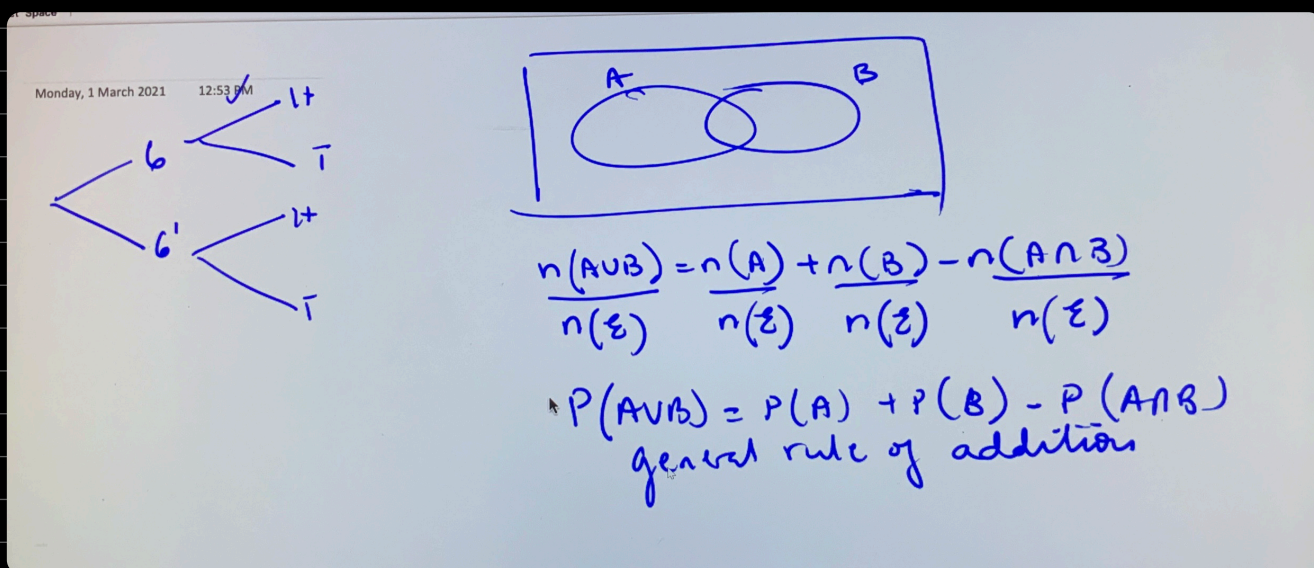 Space
Monday, 1 March 2021 12:53 PM
6
H
T
6'
H
T
A
B
n(A∪B) = n(A) + n(B) - n(A∩B)
n(ξ) n(ξ) n(ξ) n(ξ)
P(A∪B) = P(A) + P(B) - P(A∩B)
general rule of addition